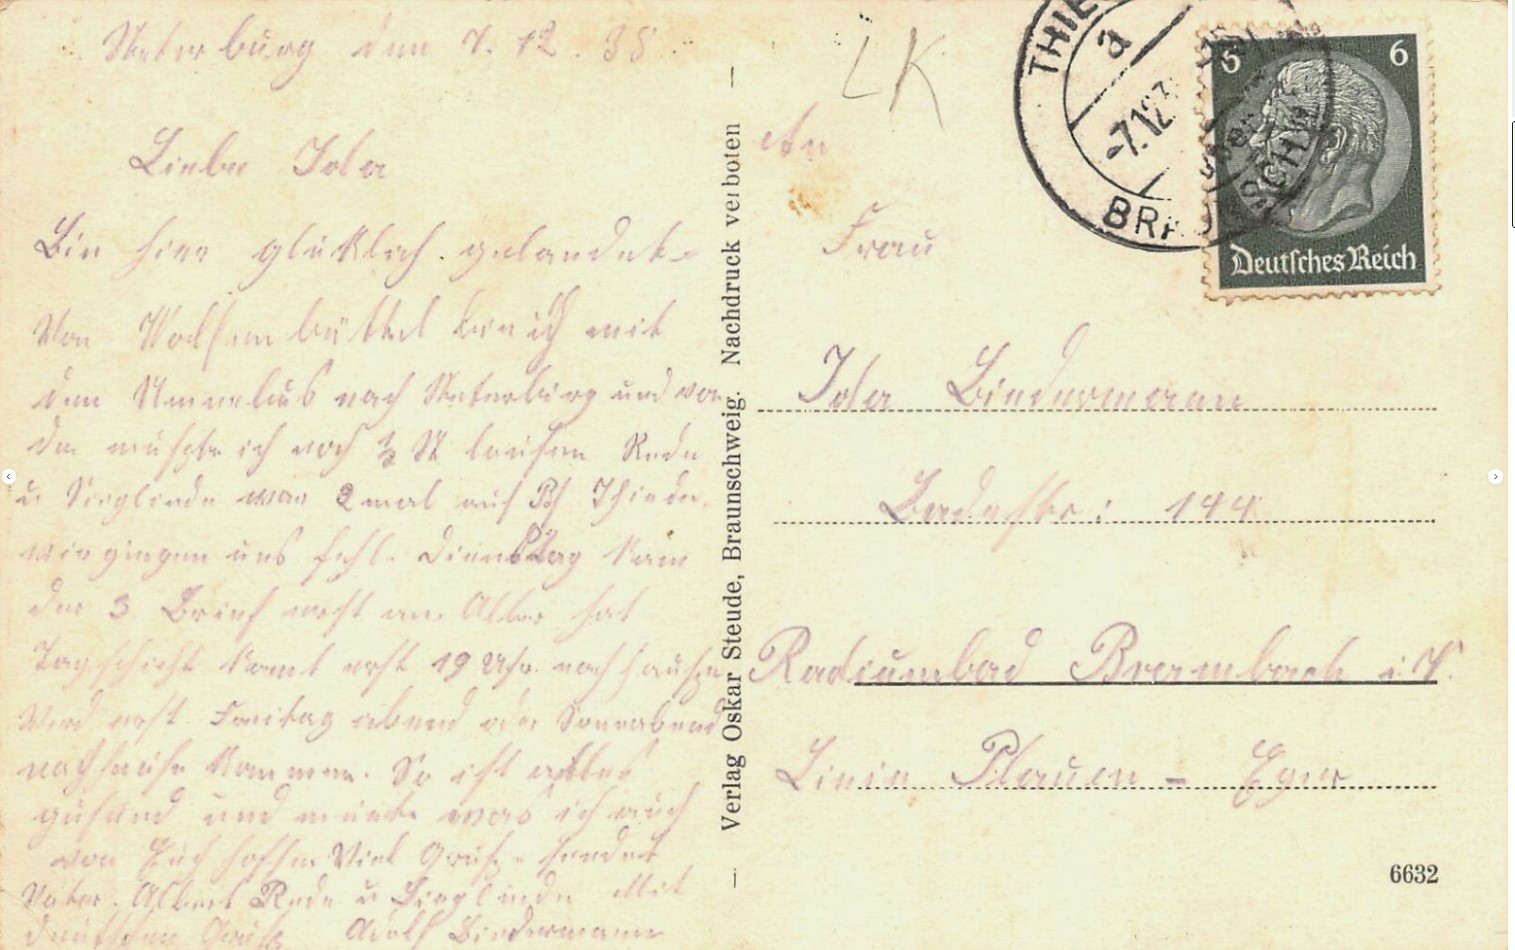 Steterburg den 7. 12. 38
Liebe Ida
Bin hier glücklich gelandet.
Von Wolfenbüttel bin ich mit
dem Omnebus nach Steterburg und von
da mußte ich noch ½ St laufen
u Sieglinde war 2 mal auf Bhf Thiede.
wir gingen uns fehl. Dienstag kam
der 3 Brief erst an. Albert hat
Tagschicht kamt erst 19 Uhr nach hause
Werd erst Freitag abend oder Sonnabend
nachhause kommen. So ist alles
gesund und munter was ich auch
von Euch hoffe. Viel Grüße sendet
Vater. Albert u Sieglinde Mit
deutschen Gruß Adolf Biedermann
Verlag Oskar Steude, Braunschweig. Nachdruck verboten
LK
THIE
a
-7.12.3
BRA
6 6
Deutsches Reich
An
Frau
Ida Biedermann
Badestr: 144
Radiumbad Brambach i. V.
Linie Plauen - Eger
6632